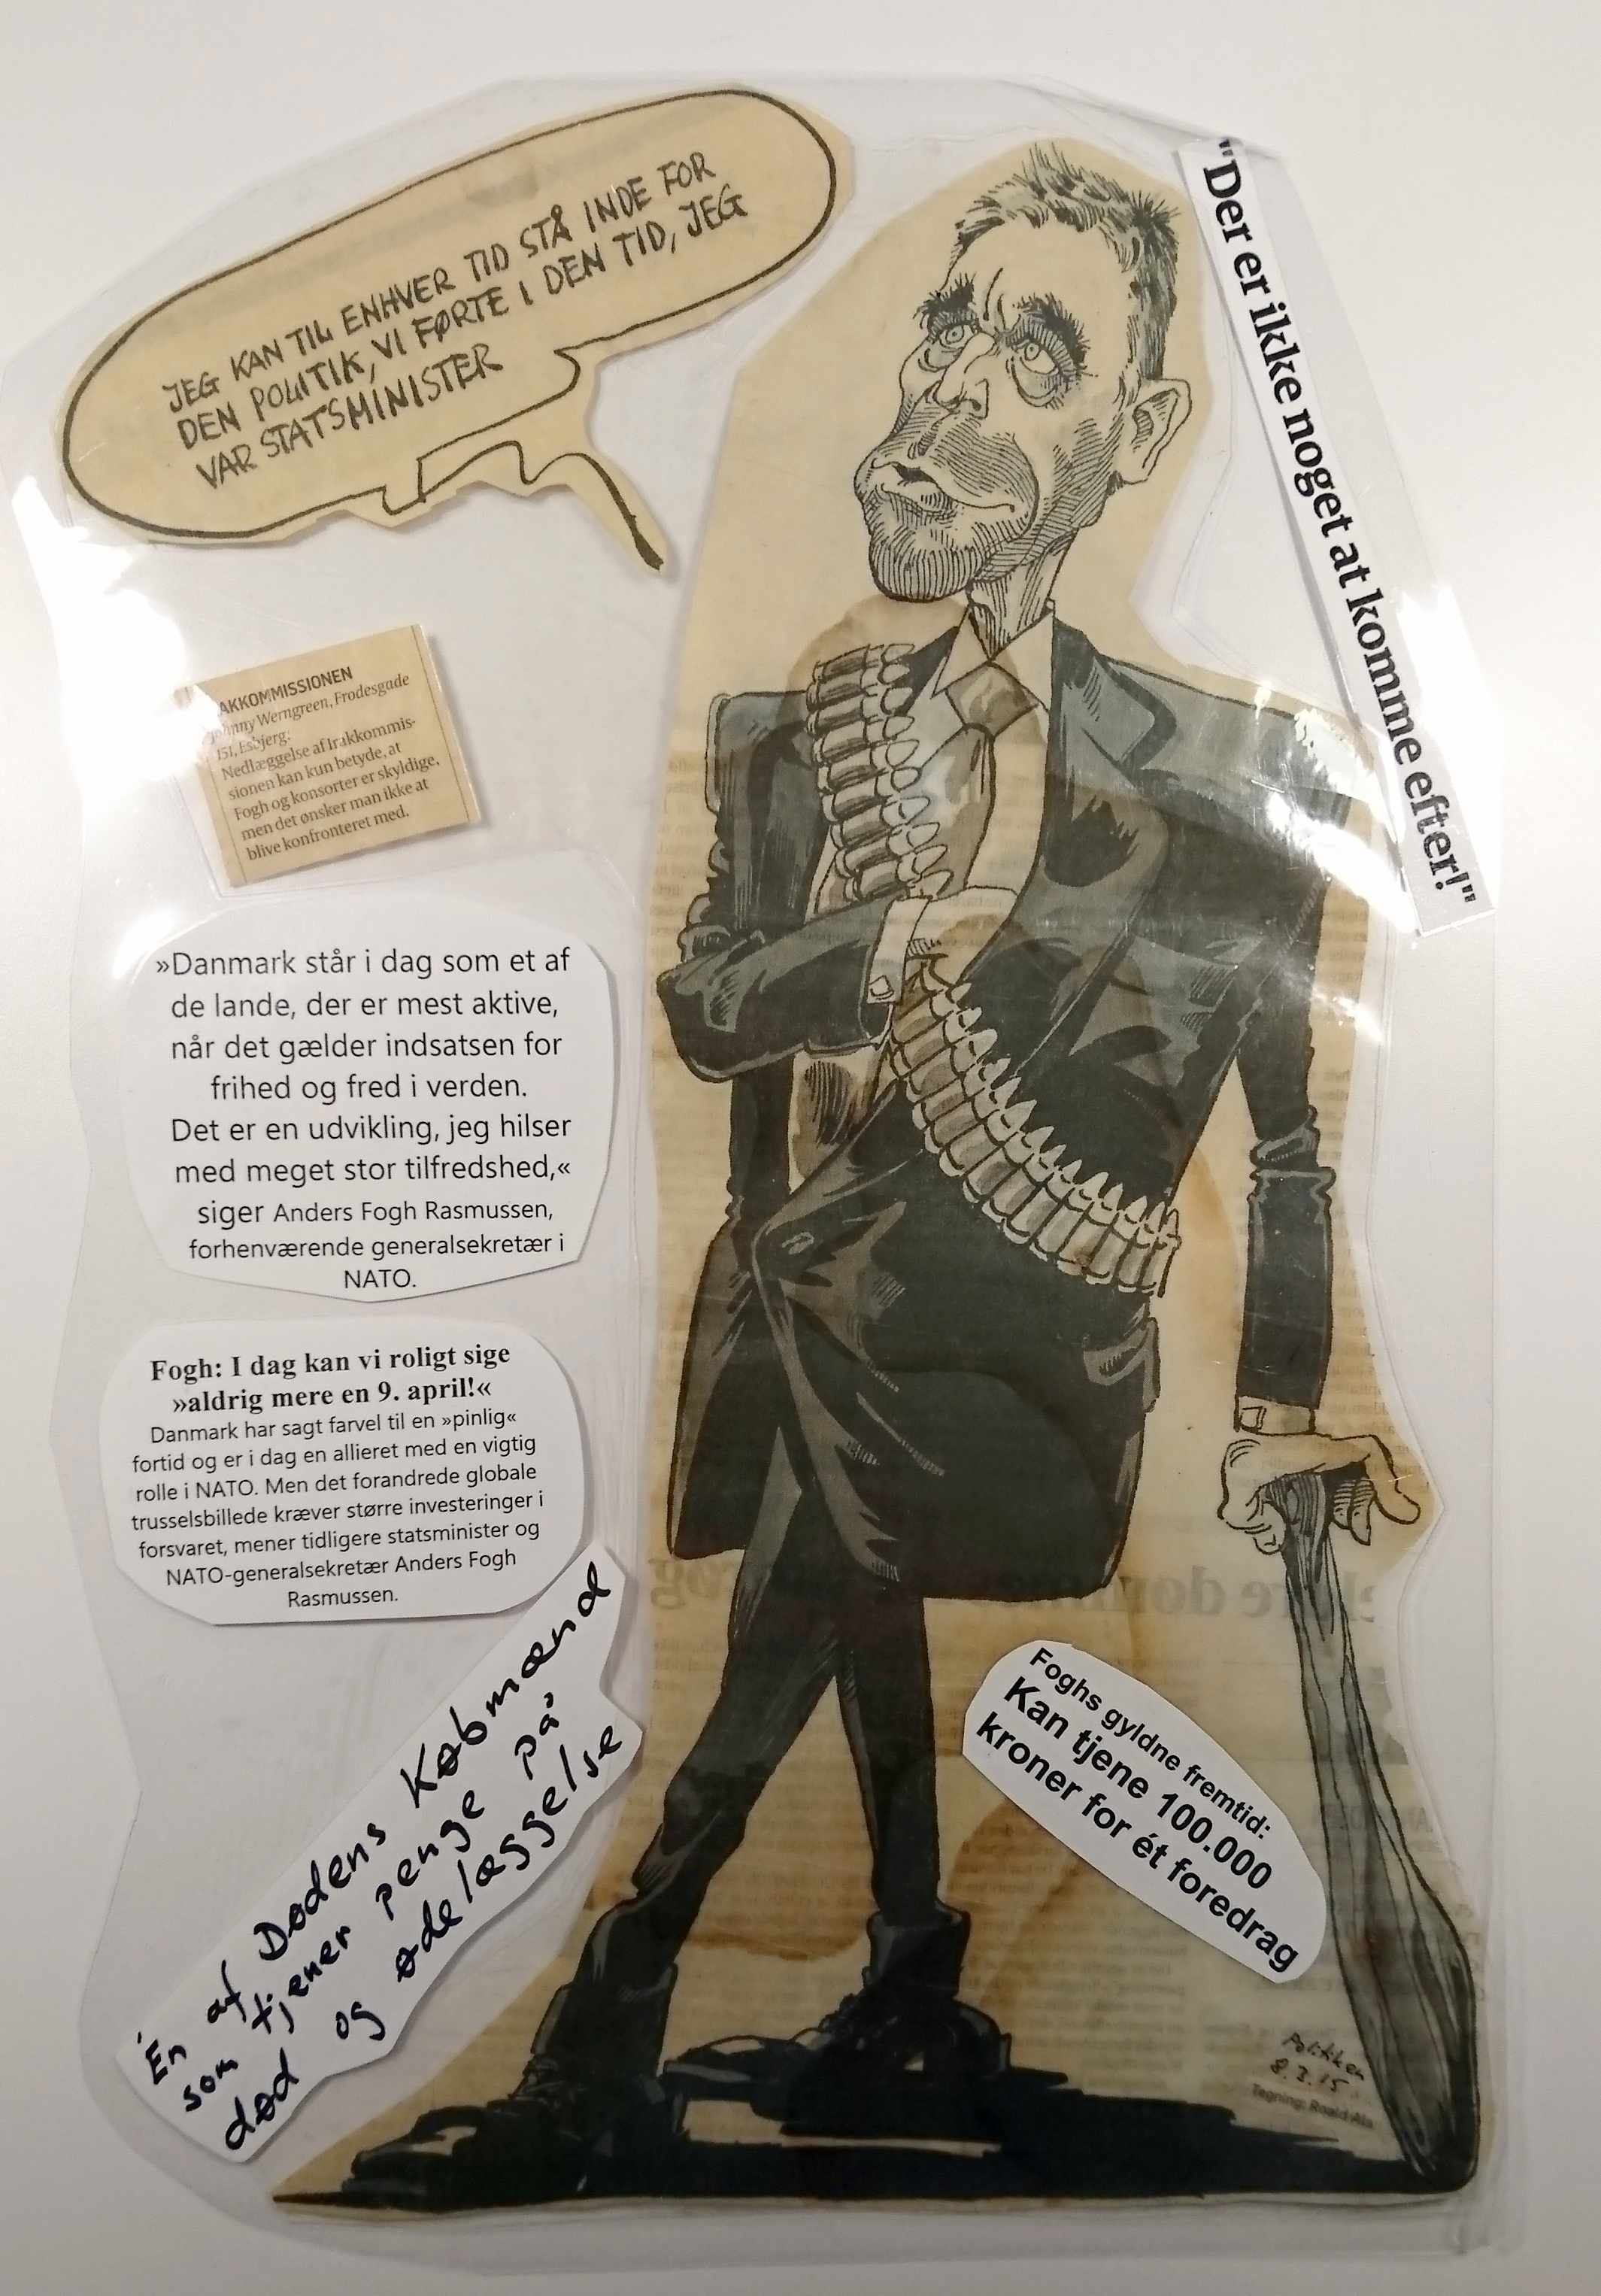 JEG KAN TIL ENHVER TID STÅ INDE FOR
DEN POLITIK, VI FØRTE I DEN TID, JEG
VAR STATSMINISTER
"Der er ikke noget at komme efter!"
AKKOMMISSIONEN
Johnny Werngreen, Frodesgade
151, Esbjerg:
Nedlæggelse af Irakkommis-
sionen kan kun betyde, at
Fogh og konsorter er skyldige,
men det ønsker man ikke at
blive konfronteret med.
»Danmark står i dag som et af
de lande, der er mest aktive,
når det gælder indsatsen for
frihed og fred i verden.
Det er en udvikling, jeg hilser
med meget stor tilfredshed,«
siger Anders Fogh Rasmussen,
forhenværende generalsekretær i
NATO.
Fogh: I dag kan vi roligt sige
»aldrig mere en 9. april!«
Danmark har sagt farvel til en »pinlig«
fortid og er i dag en allieret med en vigtig
rolle i NATO. Men det forandrede globale
trusselsbillede kræver større investeringer i
forsvaret, mener tidligere statsminister og
NATO-generalsekretær Anders Fogh
Rasmussen.
Én af Dødens Købmænd
som tjener penge på
død og ødelæggelse
Foghs gyldne fremtid:
Kan tjene 100.000
kroner for ét foredrag
Politiken
8.3.15
Tegning: Roald Als